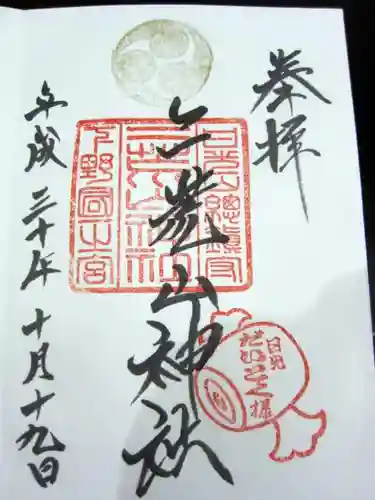 奉拝
二荒山神社
平成三十年十月十九日
日光山総鎮守
下野國一之宮
日光
だいこく様